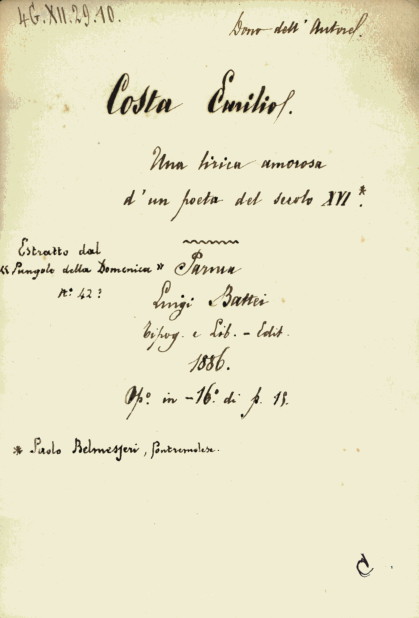 4G.XII.29.10.
Dono dell'Autore.
Costa Emilio.
Una lirica amorosa
d'un poeta del secolo XVI*.
Estratto dal
«Pungolo della Domenica»
N.° 42?
Parma
Luigi Battei
Tipog. e Lib. - Edit.
1886.
Op.° in -16.° di p. 15.
* Paolo Belmesseri, pontremolese.
C